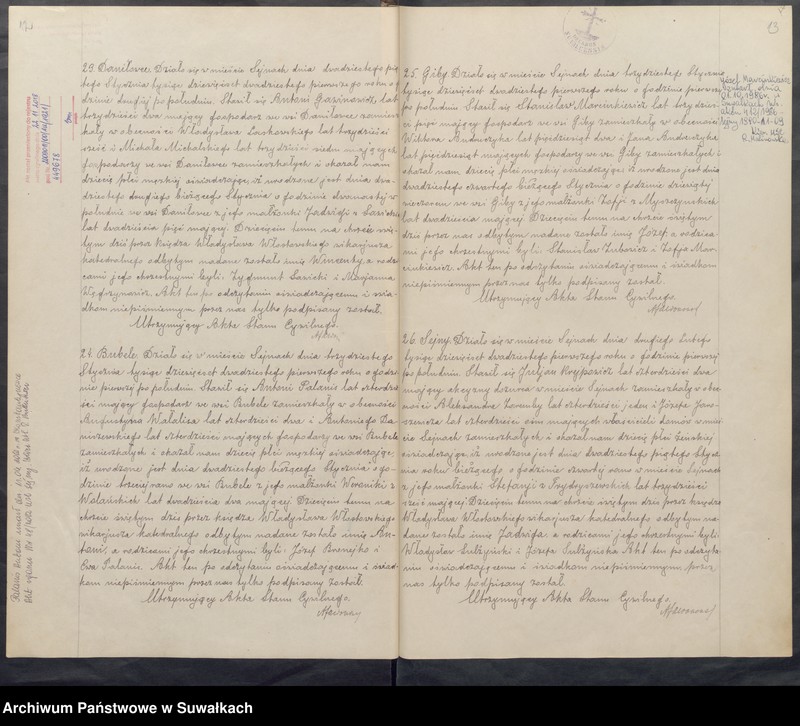 12
23. Daniłowce. Działo się w mieście Sejnach dnia dwudziestego pią-
tego Stycznia tysiąc dziewięćset dwudziestego pierwszego roku o go-
dzinie drugiej po południu. Stawił się Antoni lat
trzydzieści dwa mający gospodarz we wsi Daniłowce zamiesz-
kały w obecności Władysława lat trzydzieści
sześć i Michała Michalskiego lat trzydzieści siedm mających
gospodarzy we wsi Daniłowce zamieszkałych i okazał nam
dziecię płci męzkiej oświadczając, iż urodzone jest dnia dwu-
dziestego drugiego bieżącego Stycznia o godzinie dwunastej w
południe we wsi Daniłowce z jego małżonki Jadwigi z
lat dwadzieścia pięć mającej. Dziecięciu temu na chrzcie świę-
tym dziś przez księdza Władysława Włostowskiego wikarjusza
katedralnego odbytym nadane zostało imię Wincenty, a rodzi-
cami jego chrzestnymi byli: Zygmunt Sasicki i Marjanna
Węgrzynowicz. Akt ten po odczytaniu oświadczającemu i świa-
dkom niepiśmiennym przez nas tylko podpisany został.
Utrzymujący Akta Stanu Cywilnego.
24. Bubele. Działo się w mieście Sejnach dnia trzydziestego
Stycznia tysiąc dziewięćset dwudziestego pierwszego roku o godzi-
nie pierwszej po południu. Stawił się Antoni Palanis lat czterdzie-
ści mający gospodarz we wsi Bubele zamieszkały w obecności
Augustyna Wałalisa lat czterdzieści dwa i Antoniego
lat czterdzieści mających gospodarzy we wsi Bubele
zamieszkałych i okazał nam dziecię płci męzkiej oświadczając,
iż urodzone jest dnia dwudziestego bieżącego Stycznia o go-
dzinie trzeciej rano we wsi Bubele z jego małżonki Weroniki z
Wolańskich lat dwadzieścia dwa mającej. Dziecięciu temu na
chrzcie świętym dziś przez księdza Władysława Włostowskiego
wikarjusza katedralnego odbytym nadane zostało imię An-
toni, a rodzicami jego chrzestnymi byli: Józef i
Ewa Palanis. Akt ten po odczytaniu oświadczającemu i świad-
kom niepiśmiennym przez nas tylko podpisany został.
Utrzymujący Akta Stanu Cywilnego.
13
25. Giby. Działo się w mieście Sejnach dnia trzydziestego Stycznia
tysiąc dziewięćset dwudziestego pierwszego roku o godzinie pierwszej
po południu. Stawił się Stanisław Marcinkiewicz lat trzydzieści
pięć mający gospodarz we wsi Giby zamieszkały w obecności
Wiktora Andruczyka lat pięćdziesiąt dwa i Jana Andruczyka
lat pięćdziesiąt mających gospodarzy we wsi Giby zamieszkałych i
okazał nam dziecię płci męzkiej oświadczając, iż urodzone jest dnia
dwudziestego czwartego bieżącego Stycznia o godzinie dziewiątej
wieczorem we wsi Giby z jego małżonki Zofji z Myszczyńskich
lat dwadzieścia mającej. Dziecięciu temu na chrzcie świętym
dziś przez nas odbytym nadane zostało imię Józef, a rodzica-
mi jego chrzestnymi byli: Stanisław i Zofja Mar-
cinkiewicz. Akt ten po odczytaniu oświadczającemu i świadkom
niepiśmiennym przez nas tylko podpisany został.
Utrzymujący Akta Stanu Cywilnego.
26. Sejny. Działo się w mieście Sejnach dnia drugiego Lutego
tysiąc dziewięćset dwudziestego pierwszego roku o godzinie pierwszej
po południu. Stawił się Juljan lat czterdzieści dwa
mający akcyzny dozorca w mieście Sejnach zamieszkały w obec-
ności Aleksandra Zaremby lat czterdzieści jeden i Józefa
lat czterdzieści ośm mających właścicieli domów w mie-
ście Sejnach zamieszkałych i okazał nam dziecię płci żeńskiej
oświadczając, iż urodzone jest dnia dwudziestego piątego Stycz-
nia roku bieżącego o godzinie czwartej rano w mieście Sejnach
z jego małżonki Stefanji z lat trzydzieści
sześć mającej. Dziecięciu temu na chrzcie świętym dziś przez księdza
Władysława Włostowskiego wikarjusza katedralnego odbytym na-
dane zostało imię Jadwiga, a rodzicami jego chrzestnymi byli:
Władysław Lutyński i Józefa Lutyńska. Akt ten po odczyta-
niu oświadczającemu i świadkom niepiśmiennym przez
nas tylko podpisany został.
Utrzymujący Akta Stanu Cywilnego.
Archiwum Państwowe w Suwałkach